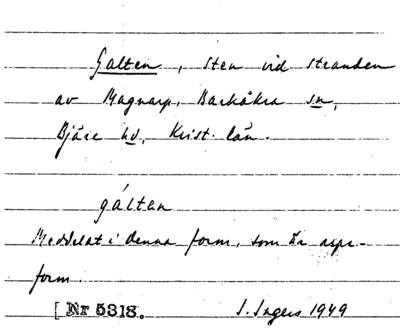 Galten, sten vid stranden
av Magnarp, Barkåkra sn,
Bjäre hd, Krist. län.
gáltan
Meddelat i denna form, som är aspr-
form.
[Nr 5318. I. Ingers 1949